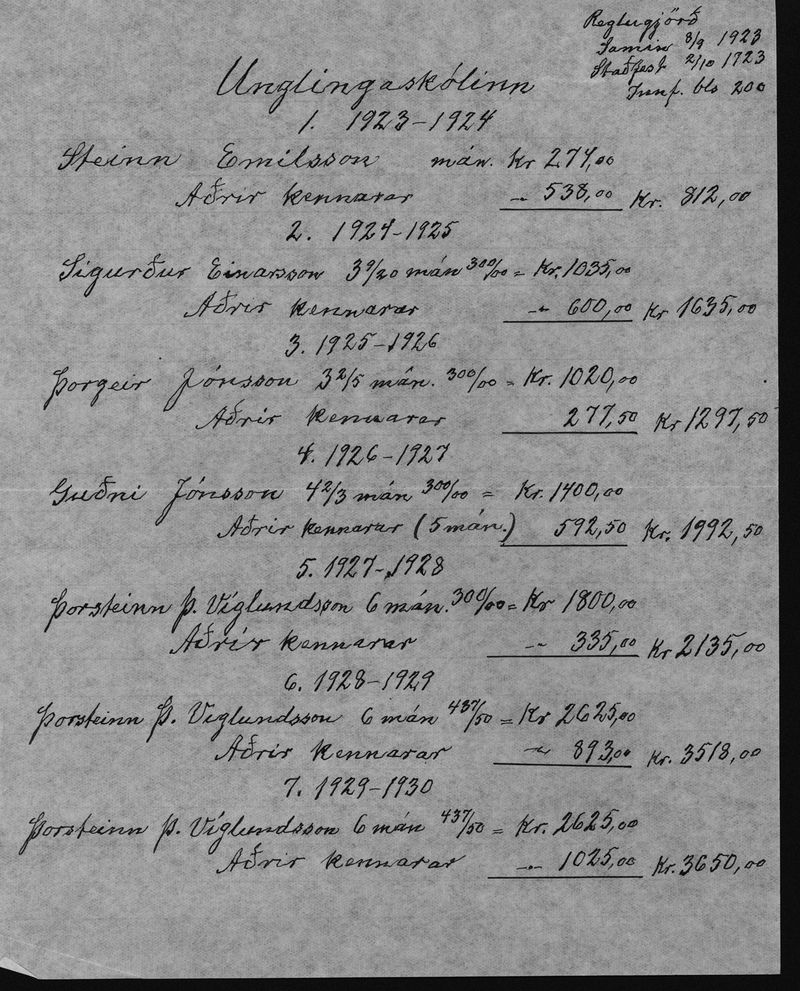 Reglugjörð
Samin 8/9 1923
Staðfest 2/10 1723
Innf. bls 200
Unglingaskólinn
1. 1923-1924
Steinn Emilsson mán. Kr 274,00
Aðrir kennarar -"- 538,00 Kr. 812,00
2. 1924-1925
Sigurður Einarsson 3 9/20 mán 300/00 = Kr. 1035,00
Aðrir kennarar -"- 600,00 Kr 1635,00
3. 1925-1926
Þorgeir Jónsson 3 2/5 mán. 300/00 = Kr. 1020,00
Aðrir kennarar 277,50 Kr 1297,50
4. 1926-1927
Guðni Jónsson 4 2/3 mán 300/00 = Kr. 1400,00
Aðrir kennarar (5 mán.) 592,50 Kr. 1992,50
5. 1927-1928
Þorsteinn Þ. Víglundsson 6 mán. 300/00 = Kr 1800,00
Aðrir kennarar -"- 335,00 Kr 2135,00
6. 1928-1929
Þorsteinn Þ. Víglundsson 6 mán 437/50 = Kr 2625,00
Aðrir kennarar -"- 893,00 Kr. 3518,00
7. 1929-1930
Þorsteinn Þ. Víglundsson 6 mán 437/50 = Kr. 2625,00
Aðrir kennarar -"- 1025,00 Kr. 3650,00